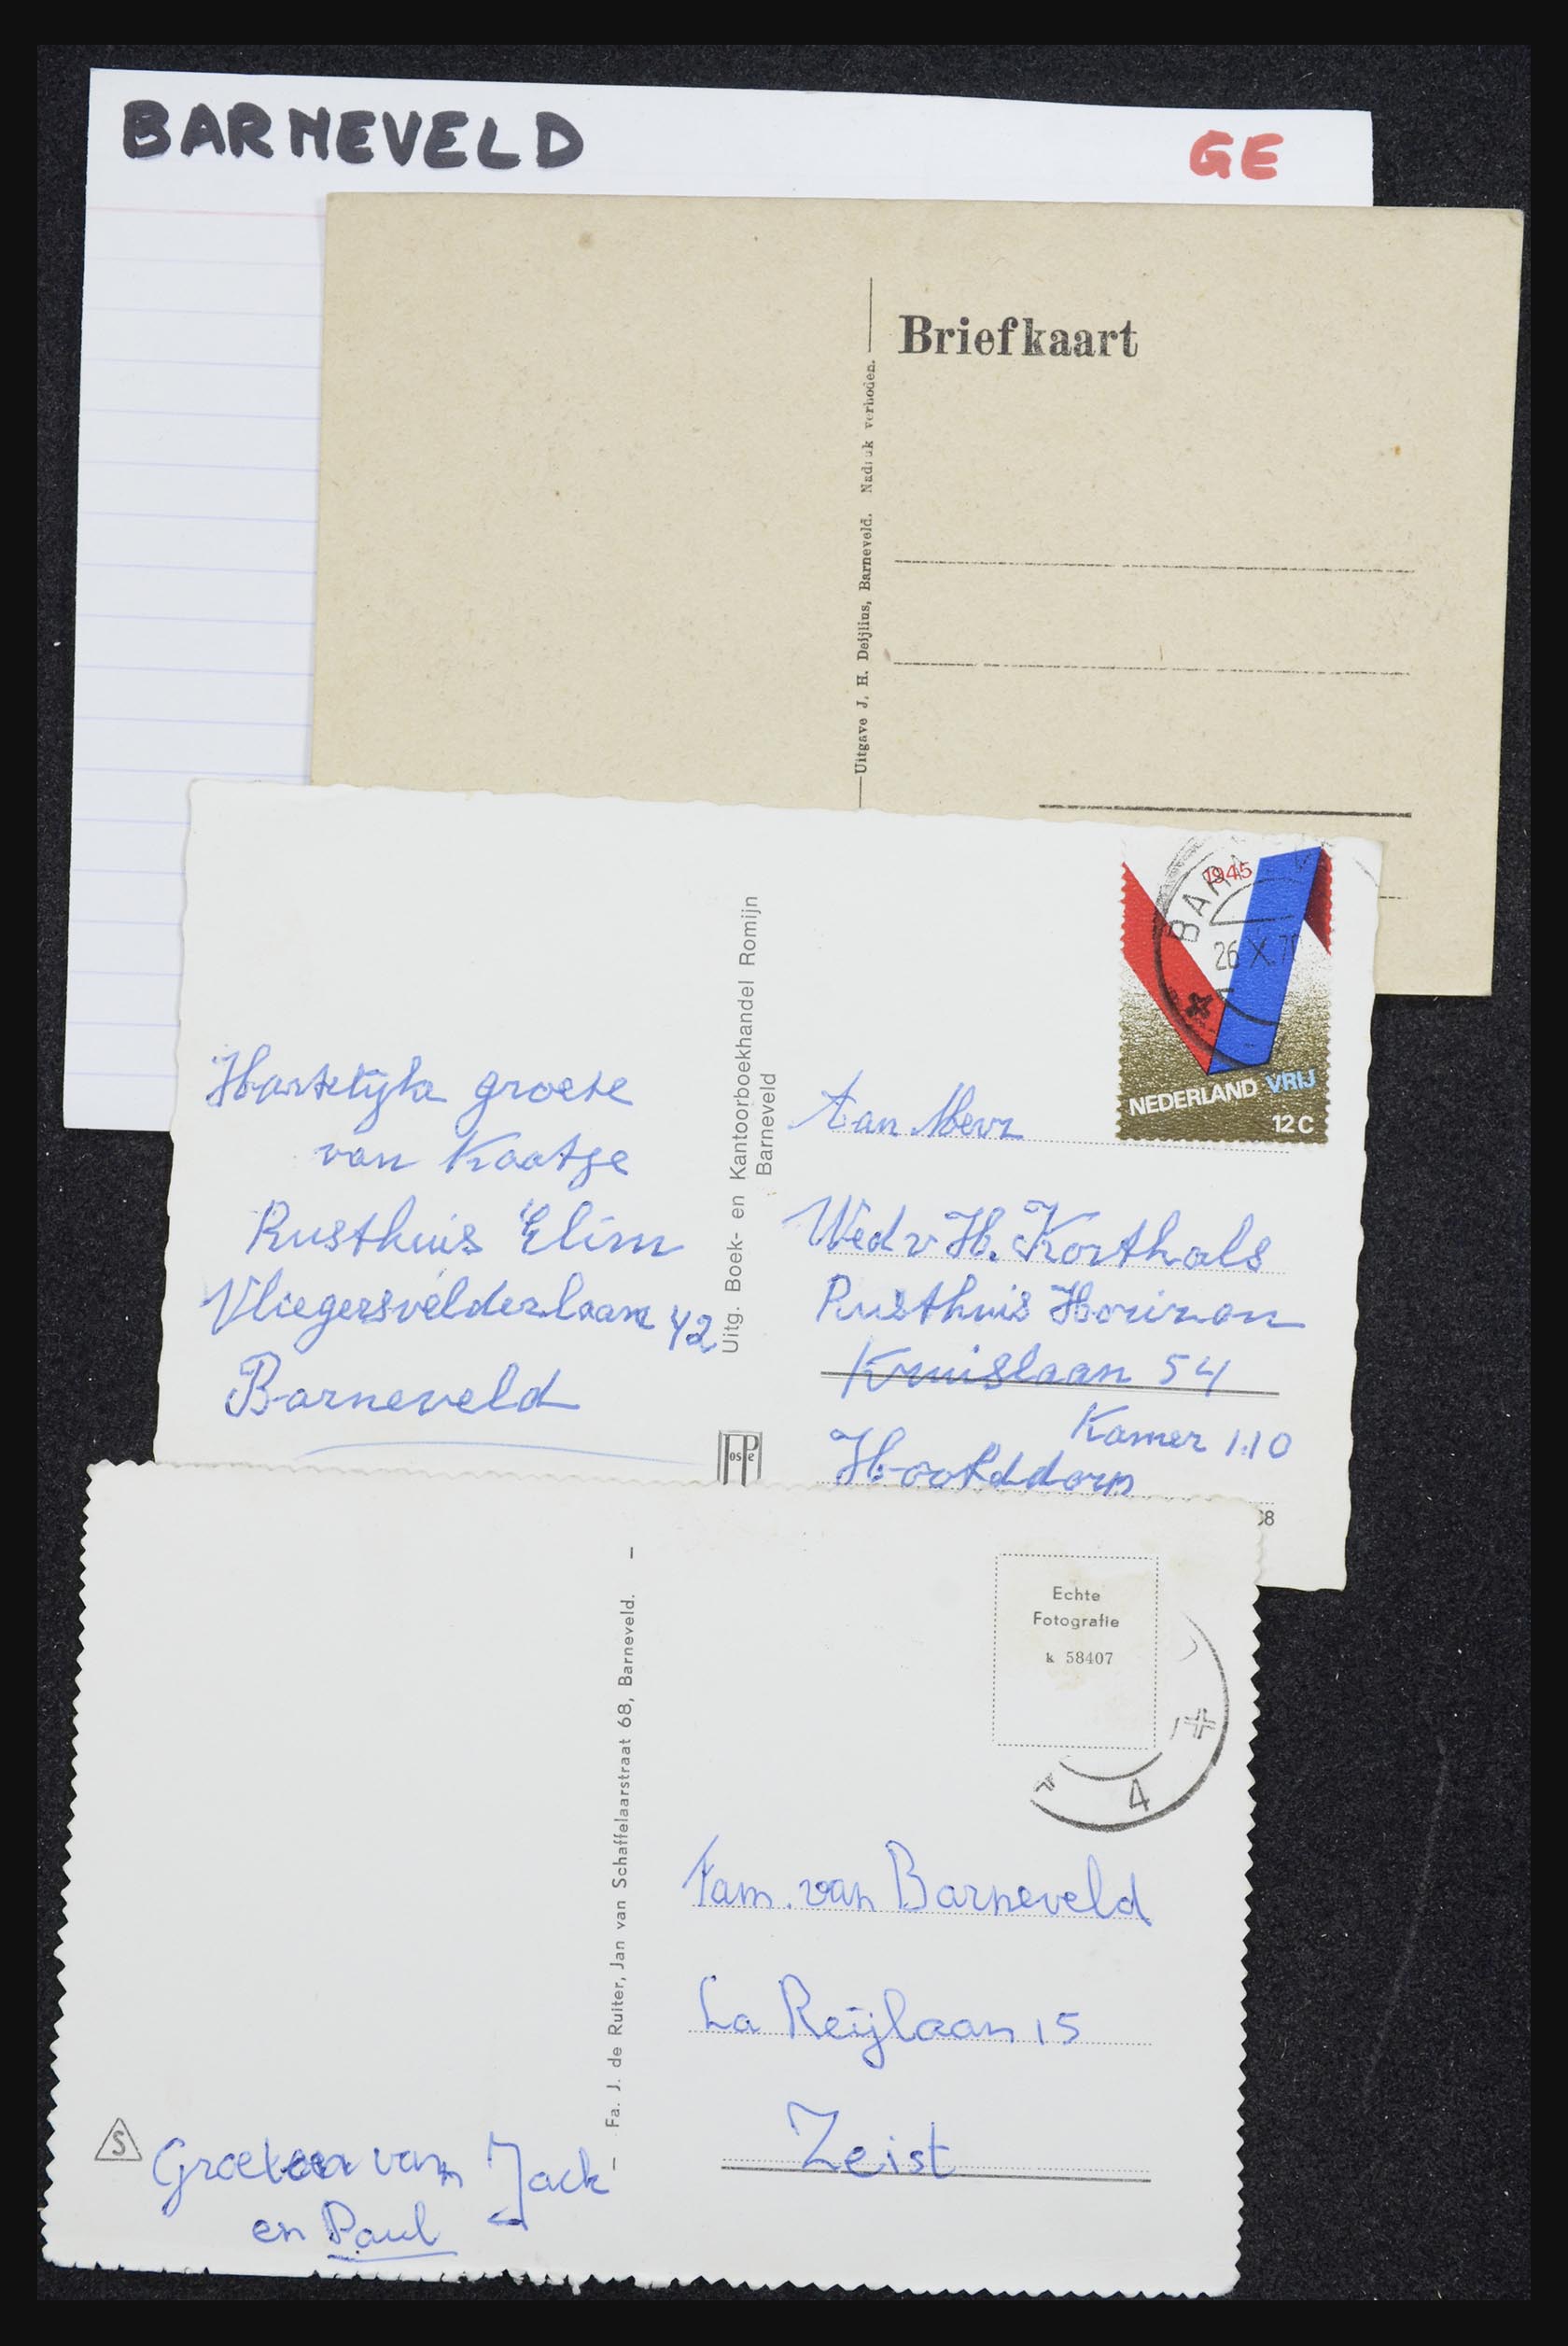 BARNEVELD
GE
Briefkaart
Uitgave J. H. Deijlius, Barneveld. Nadruk verboden.
1945
BARN
26 X.7
NEDERLAND VRIJ
12 C
Hartelijke groete
van Kaatje
Rusthuis Elim
Vliegersvelderlaan 42
Barneveld
Uitg. Boek- en Kantoorboekhandel Romijn
Barneveld
Aan Mevr
Wed v H. Korthals
Rusthuis Horizon
Kruislaan 54
Kamer 110
Hoofddorp
8
Echte
Fotografie
k 58407
4
– Fa. J. de Ruiter, Jan van Schaffelaarstraat 68, Barneveld. –
Fam. van Barneveld
La Reijlaan 15
Zeist
S
Groeten van Jack
en Paul